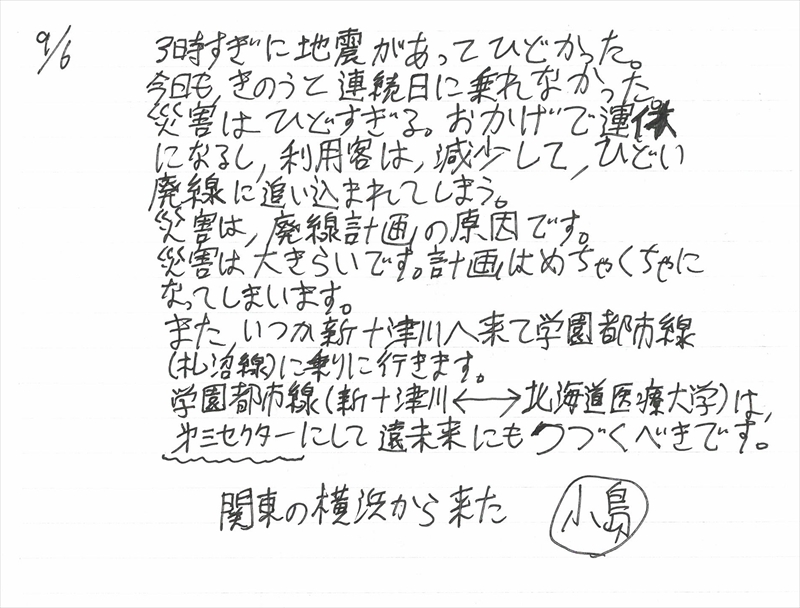 9/6
3時すぎに地震があってひどかった。
今日も、きのうと連続日に乗れなかった。
災害はひどすぎる。おかげで運休
になるし、利用客は、減少して、ひどい
廃線に追い込まれてしまう。
災害は、廃線計画の原因です。
災害は大きらいです。計画はめちゃくちゃに
なってしまいます。
また、いつか新十津川へ来て学園都市線
(札沼線)に乗りに行きます。
学園都市線(新十津川⟷北海道医療大学)は、
㐧三セクターにして遠未来にもつづくべきです。
関東の横浜から来た 小島